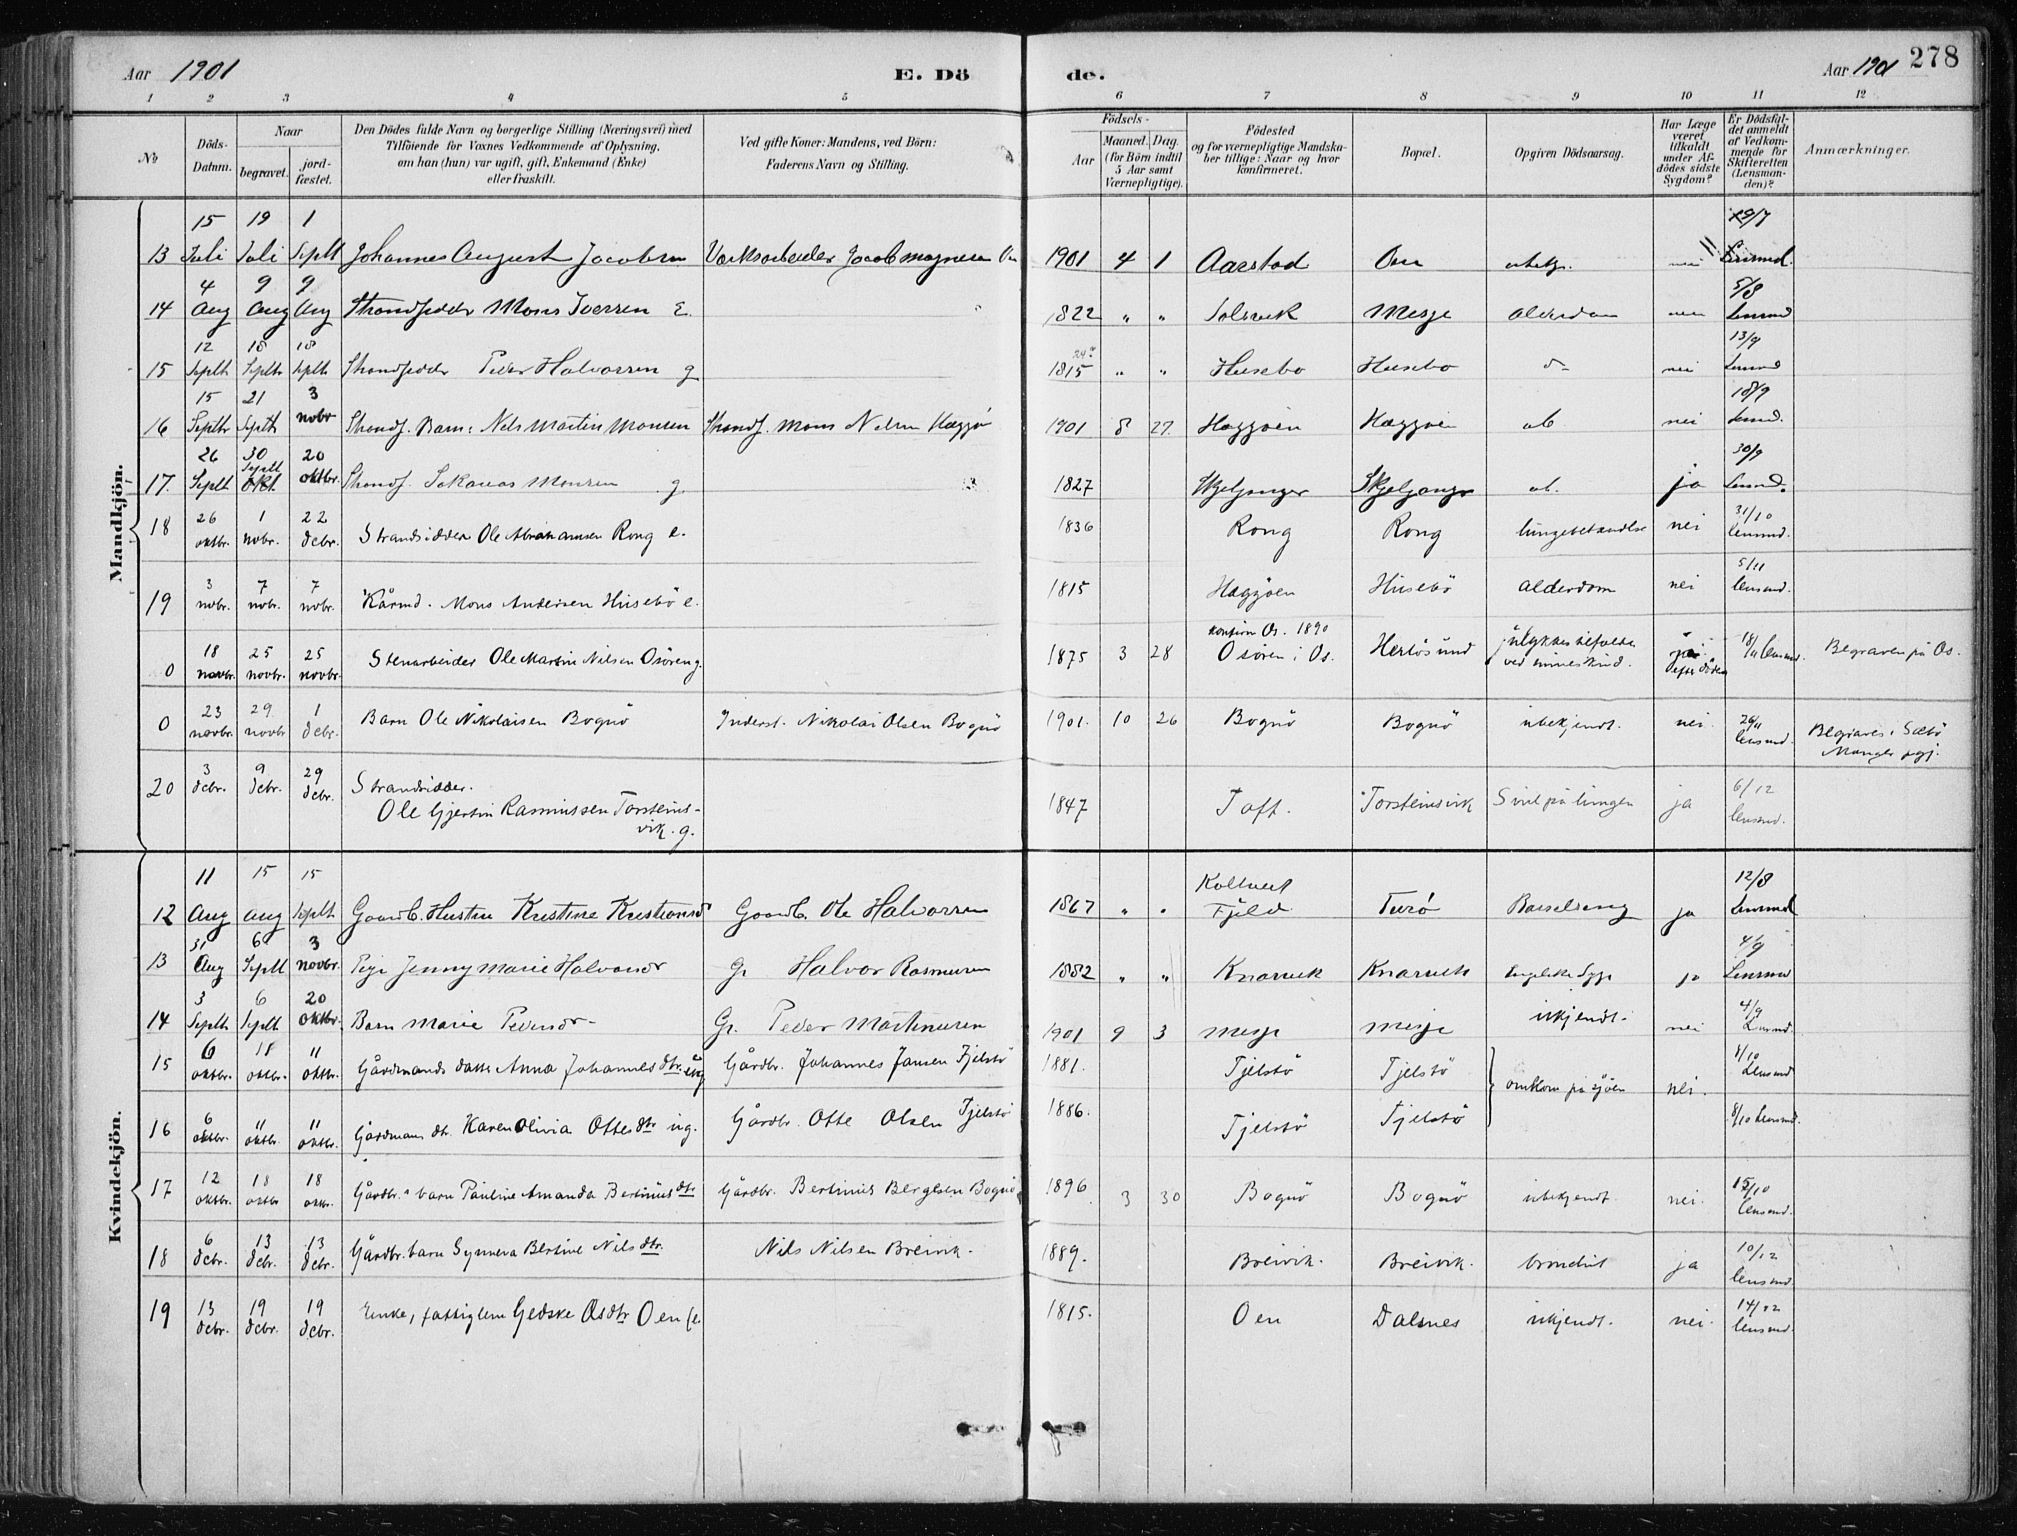 Aar 1901
E. Dö
de.
Aar 1901
278
1 2 3 4 5 6 7 8 9 10 11 12
No
Döds-
Datum.
Naar
begravet.
jord-
fæstet.
Den Dödes fulde Navn og borgerlige Stilling (Næringsvei) med
Tilföiende for Voxnes Vedkommende af Oplysning,
om han (hun) var ugift, gift, Enkemand (Enke)
eller fraskilt.
Ved gifte Koner: Mandens, ved Börn:
Faderens Navn og Stilling.
Födsels-
Aar
Maaned. Dag.
(for Börn indtil
5 Aar samt
Værnepligtige).
Födested
og for værnepligtige Mandska-
ber tillige: Naar og hvor
konfirmeret.
Bopæl.
Opgiven Dödsaarsag.
Har Læge
været
tilkaldt
under Af-
dödes sidste
Sygdom?
Er Dödsfal-
det anmeldt
af Vedkom-
mende for
Skifteretten
(Lensman-
den)?
Anmærkninger.
Mandkjön.
15 19 1
13 Juli Juli Septr Johannes August Jacobsen Jacob Mognesen 1901 4 1 Aarstad nei
4 9 9 5/8
14 Aug Aug Aug Strandsidder Mons Iversen E. 1822 " " Solsvik Misje Alderdom nei Lensmd
12 18 18 13/9
15 Septr Septr Septr Strandsidder Peder Halvorsen g 1815 " " Husebø Husebø nei Lensmd
15 21 3 18/9
16 Septbr Septb novbr Strandf. Barn: Nels Martin Monsen Strandf. Mons Nilsen Hæggö 1901 8 27 Hæggöen Hæggöen nei Lensmd.
26 30 20 30/9
17. Septb Septb oktbr. Strandf. Monsen g. 1827 Skjeljanger Skjeljanger ja Lensmd.
26 1 22 31/10
18 oktbr. novbr. debr. Strandsidder Ole Abrahamsen Rong e. 1836 Rong Rong lungebetændlse nei lensmd.
3 7 7 5/11
19 novbr. novbr. novbr. Kårmd. Mons Andersen Husebö e. 1815 Hæggöen Husebö Alderdom nei lensmd.
18 25 25 konfirm Os. 1890
0 novbr. novbr. novbr. Stenarbeider Ole Martin Nilsen Osören g. 1875 3 28 Osören i Os. Herlösund ulykkestilfælde ved mineskud. efter döden 18/11 lensmd. Begraven på Os.
23 29 1
0 novbr. novbr debr. Barn Ole Nikolaisen Bognö Inderst. Nikolai Olsen Bognö 1901. 10 26 Bognö Bognö ubekjendt. nei. 26/11 lensmd. Begraves i Sæbö
Manger pgj.
3 9 29 6/12
20 debr. debr. debr. Strandsidder.
Ole Gjertin Rasmussen Torsteins-
vik. g. 1847 Toft. Torsteinsvik på lungen ja lensmd.
Kvindekjön.
11 15 15 12/8
12 Aug Aug Septr Gaardb. Hustru Kristine Kristiansd Gaardb. Ole Halvorsen 1867 " " Koltveit
Fjeld Turö Barselseng ja Lensmd
31 6 3 4/9
13 Aug Septb novbr. Pige Jenny Marie Halvorsdr G. Halvor Rasmusen 1882 " " Knarvik Knarvik Engelske Syge ja Lensmd
3 6 20 4/9
14 Septb Septb oktbr. Barn Marie Pedersdr G. Peder Martinusen 1901 9 3 Misje Misje ukjendt. nei Lensmd.
6 18 11 8/10
15 oktbr. oktbr. oktbr. Gårdmands datter Anna Johannesdtr. ug Gårdbr. Johannes Jansen Tjelstö 1881. Tjelstö Tjelstö omkom på sjöen nei. Lensmd
6 11 11
16 oktbr. oktbr. oktbr. Gårdmans dt. Karen Olivia Ottesdtr ug. Gårdbr. Otte Olsen Tjelstö 1886. Tjelstö Tjelstö 8/10 Lensmd.
12 18 18 15/10
17 oktbr. oktbr oktbr. Gårdbr. barn Pauline Amanda Bertinusdtr Gårdbr. Bertinus Bergesen Bognö 1896 3 30 Bognö Bognö ubekjendt. nei. lensmd.
6 13 13 10/12
18 debr. debr. debr. Gårdbr. barn Synneva Bertine Nilsdtr. Nils Nilsen Breivik. 1889. Breivik. Breivik. bronchit ja lensmd.
13 19 19 14/12
19 debr. debr. debr. Enke, fattiglem Gedske Olsdtr Oen (e. 1815. Oen Dalsnes ukjendt. nei. lensmd.